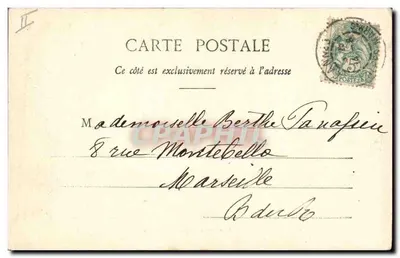 II
CARTE POSTALE
Ce côté est exclusivement réservé à l'adresse
Mademoiselle Berthe
8 rue Montebello
Marseille
B du R